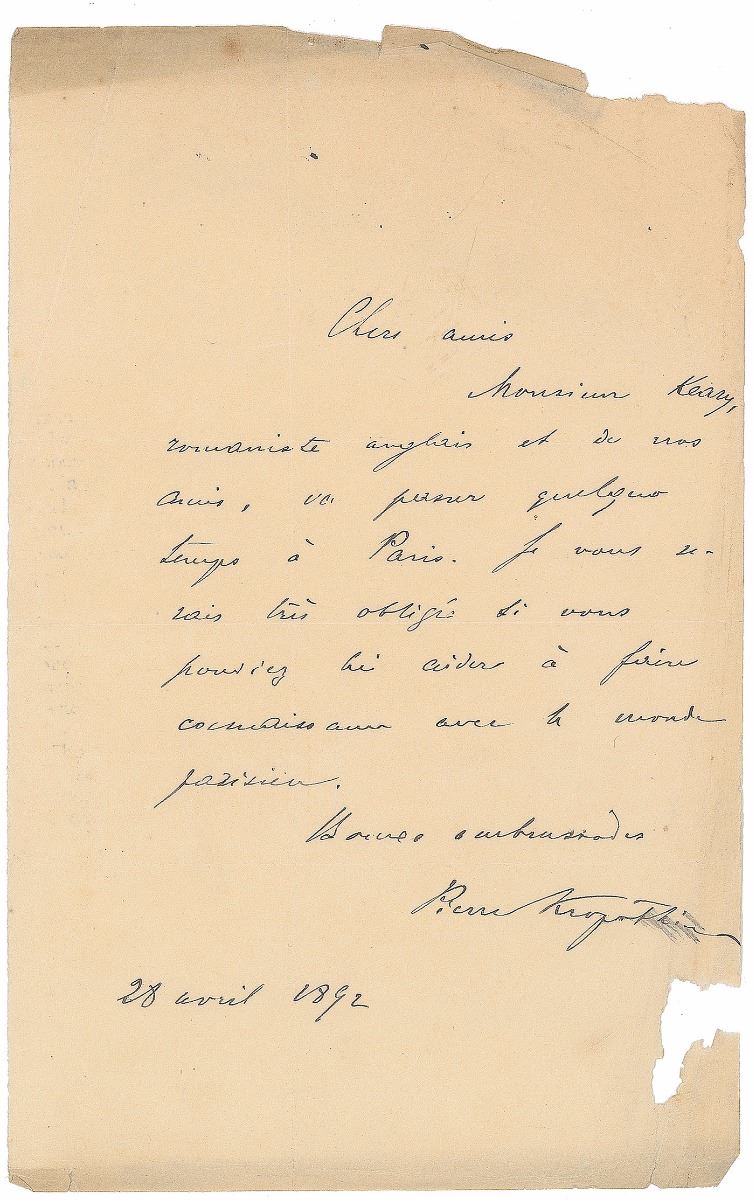 Chers amis
Monsieur Keary,
romaniste anglais et de nos
amis, va passer quelque
temps à Paris. Je vous se-
rais très obligé si vous
pouviez lui aider à faire
connaissance avec le monde
parisien.
Bonnes embrassades
Pierre Kropotkine
28 avril 1892